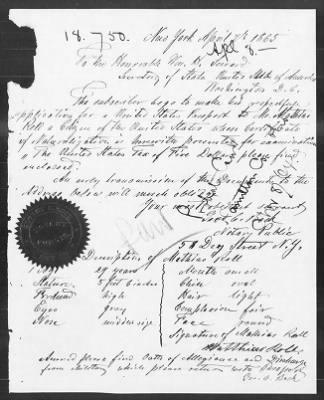 18.750. New York April 7th 1865
Apl 8
To the Honorable Wm. H. Seward
Secretary of State United States of America
Washington D.C.
The subscriber begs to make his respectful
application for a United States Passport to Mr Mathias
Roll a Citizen of the United States whose Certificate
of Naturalization is herewith presented for examination
The United States Tax of Five Dollars please find
inclosed.
An early transmission of the Documents to the
Address below will much oblige
Your most Obedient servant
Notary Public
58 Dey Street N.Y.
Description of Mathias Roll
29 years Mouth small
Stature 5 feet Chin oval
Forehead high Hair light
Eyes gray Complexion fair
Nose middle size Face round
Signature of Mathias Roll
Matthias Roll
Annexed please find Oath of Allegiance and Discharge
from military which please return with Passport